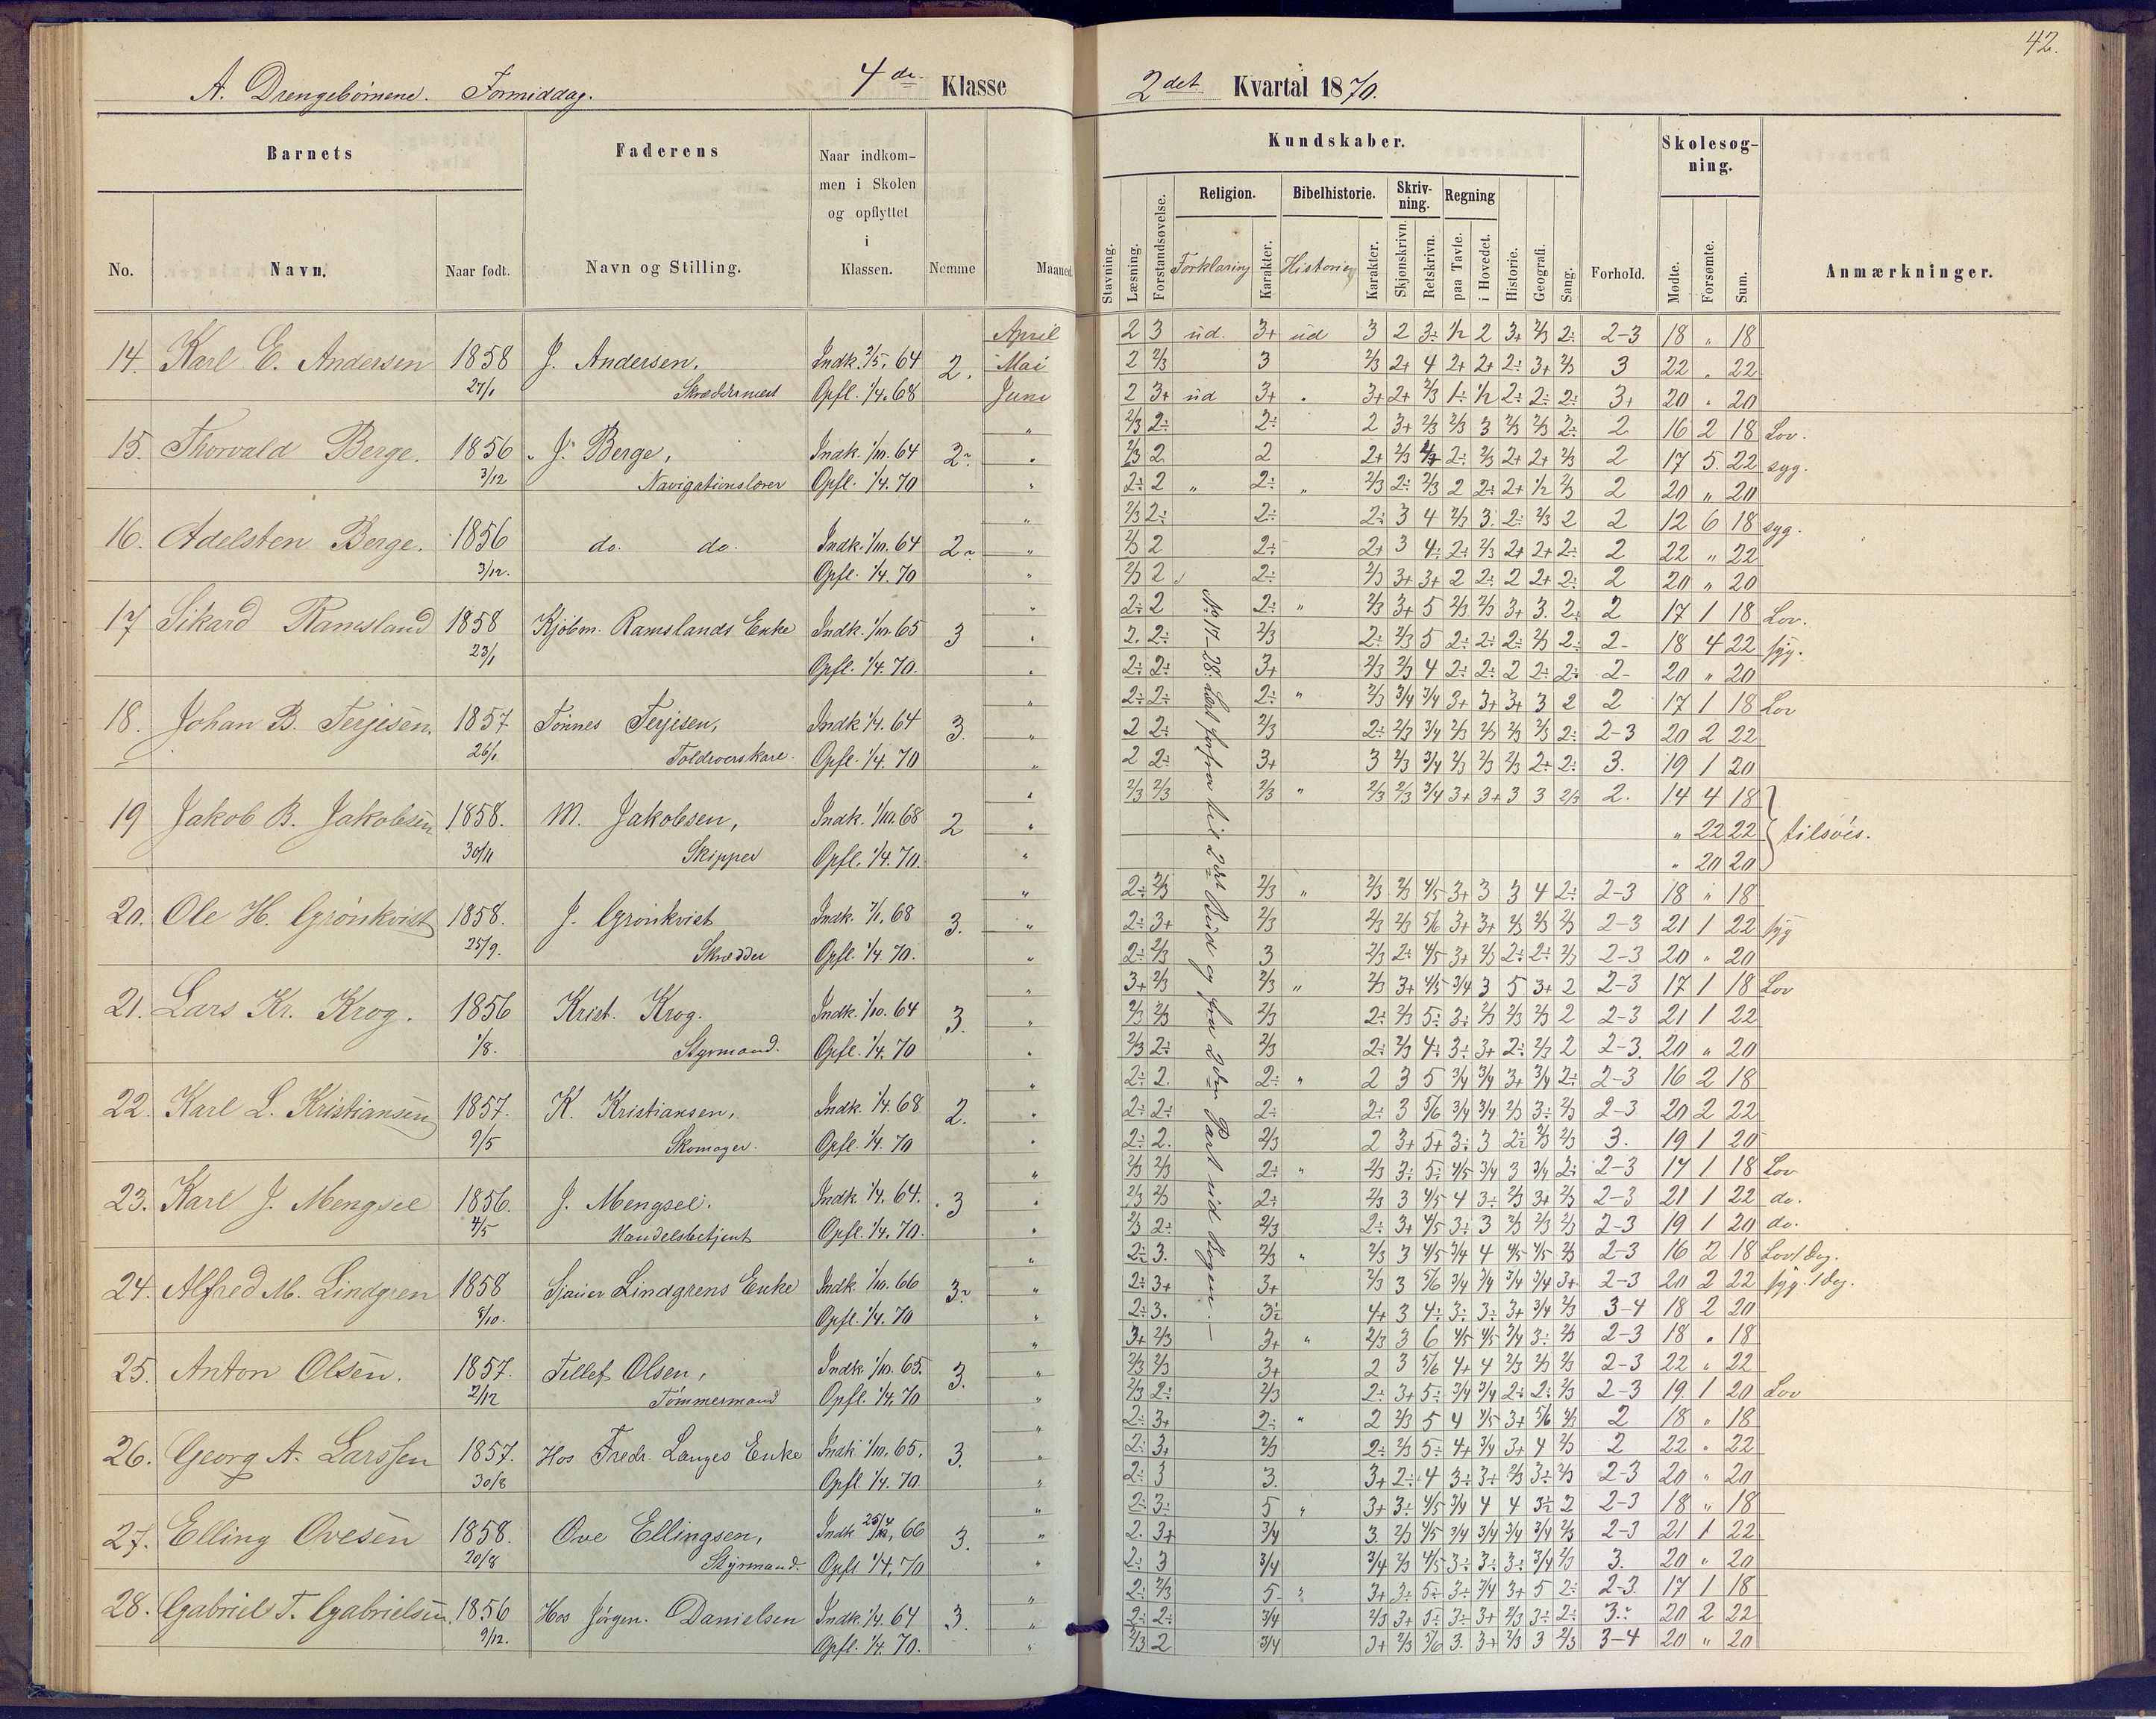 42.
A. Drengebörnene. Formiddag. 4de Klasse
2det Kvartal 1870.
Barnets Faderens Naar indkommen i Skolen og opflyttet i Klassen. Nemme Maaned
No. Navn. Naar født. Navn og Stilling.
Kundskaber. Forhold. Skolesøgning. Anmærkninger.
Stavning. Læsning. Forstandsøvelse. Religion. Bibelhistorie. Skrivning. Regning Historie. Geografi. Sang.
Forklaring Karakter. Historie Karakter. Skjønskrivn. Retskrivn. paa Tavle. i Hovedet. Mødte. Forsømte. Sum.
14. Karl E. Andersen 1858 27/1 J. Andersen, Indk. 64 Opfl. 1/4. 68 2. April Mai Juni
2 3 ud. 3+ ud 3 2 3÷ 1/2 2 3+ 2/3 2÷ 2-3 18 " 18
2 2/3 3 2/3 2+ 4 2+ 2+ 2÷ 3+ 2/3 3 22 " 22
2 3+ ud 3+ 3+ 2+ 2/3 1÷ 1/2 2÷ 2÷ 2÷ 3+ 20 " 20
15. Thorvald Berge. 1856 3/12 J. Berge, Navigationslærer Indk. 1/10. 64 Opfl. 1/4. 70 2÷
2/3 2÷ 2÷ 2 3+ 2/3 2/3 3 2/3 2/3 2÷ 2 16 2 18 Lov.
2/3 2 2 2+ 2/3 2÷ 2/3 2+ 2+ 2/3 2 17 5 22 syg.
2÷ 2 " 2÷ " 2/3 2÷ 2/3 2 2÷ 2+ 1/2 2/3 2 20 " 20
16. Adelsten Berge. 1856 3/12. do. do. Indk. 1/10. 64 Opfl. 1/4. 70 2÷
2/3 2÷ 2÷ 2÷ 3 4 2/3 3. 2÷ 2/3 2 2 12 6 18 syg.
2/3 2 2÷ 2+ 3 4÷ 2÷ 2/3 2+ 2+ 2÷ 2 22 " 22
2/3 2 2÷ 2/3 3+ 3+ 2 2÷ 2 2+ 2÷ 2 20 " 20
17 Sikard Ramsland 1858 23/1 Kjöbm. Ramslands Enke Indk. 1/10. 65 Opfl. 1/4. 70. 3
2÷ 2 2÷ " 2/3 3+ 5 2/3 2/3 3+ 3. 2÷ 2 17 1 18 Lov.
2. 2÷ 2/3 2÷ 2/3 5 2÷ 2÷ 2÷ 2/3 2÷ 2- 18 4 22 syg.
2÷ 2÷ 3+ 2/3 2/3 4 2÷ 2÷ 2 2÷ 2÷ 2- 20 " 20
18. Johan B. Terjisen. 1857 26/1 Tönnes Terjisen, Toldroerskarl Indk 1/4. 64 Opfl. 1/4. 70 3.
2÷ 2÷ 2÷ " 2/3 3/4 3/4 3+ 3+ 3+ 3 2 2 17 1 18 Lov
2 2÷ 2/3 2÷ 2/3 3/4 2/3 2/3 2/3 2/3 2÷ 2-3 20 2 22
2 2÷ 3+ 3 2/3 3/4 2/3 2/3 2/3 2+ 2÷ 3. 19 1 20
19 Jakob B. Jakobsen 1858. 30/11 M. Jakobsen, Skipper Indk. 1/10. 68 Opfl. 1/4. 70. 2
2/3 2/3 2/3 " 2/3 2/3 3/4 3+ 3+ 3 3 2/3 2. 14 4 18
" 22 22 tilsöes.
" 20 20
20. Ole H. Grönkvist 1858. 25/9. J. Grönkvist Skrædder Indk. 68 Opfl. 1/4. 70. 3.
2÷ 2/3 2/3 " 2/3 2/3 4/5 3+ 3 3 4 2÷ 2-3 18 " 18
2÷ 3+ 2/3 2/3 2/3 5/6 3+ 3+ 2/3 2/3 2/3 2-3 21 1 22 syg
2÷ 2/3 3 2/3 2÷ 4/5 3+ 2/3 2÷ 2÷ 2/3 2-3 20 " 20
21. Lars Kr. Krog. 1856 1/8. Krist. Krog. Styrmand. Indk. 1/10. 64 Opfl. 1/4. 70 3.
3+ 2/3 2/3 " 2/3 3+ 4/5 3/4 3 5 3+ 2 2-3 17 1 18 Lov
2/3 2/3 2/3 2÷ 2/3 5÷ 3÷ 2/3 2/3 2/3 2 2-3 21 1 22
2/3 2÷ 2/3 2÷ 2/3 4÷ 3÷ 3+ 2÷ 2/3 2 2-3. 20 " 20
22. Karl L. Kristiansen 1857. 9/5 K. Kristiansen, Skomager. Indk. 1/4. 68 Opfl. 1/4. 70 2.
2÷ 2. 2÷ " 2 3 5 3/4 3/4 3+ 3/4 2÷ 2-3 16 2 18
2÷ 2÷ 2÷ 2÷ 3 5/6 3/4 3/4 2/3 3÷ 2/3 2-3 20 2 22
2÷ 2. 2/3 2 3+ 5+ 3÷ 3 2÷ 2/3 2/3 3. 19 1 20
23. Karl J. Mengsel 1856. 4/5 J. Mengsel. Handelsbetjent Indk 1/4. 64. Opfl. 1/4. 70. 3
2/3 2/3 2÷ " 2/3 3÷ 5÷ 4/5 3/4 3 3/4 2÷ 2-3 17 1 18 Lov
2/3 2/3 2÷ 2/3 3 4/5 4 3÷ 2/3 3+ 2/3 2-3 21 1 22 do.
2/3 2÷ 2/3 2÷ 3+ 4/5 3÷ 3 2/3 2/3 2/3 2-3 19 1 20 do.
24. Alfred M. Lindgren 1858 8/10. Sjauer Lindgrens Enke Indk 1/10. 66 Opfl. 1/4. 70 3÷
2÷ 3. 2/3 " 2/3 3 4/5 3/4 4 4/5 4/5 2/3 2-3 16 2 18 Lov 1 dag.
2÷ 3+ 3+ 2/3 3 5/6 3/4 3/4 3/4 3/4 3+ 2-3 20 2 22 syg. 1 dag.
2÷ 3. 3÷ 4+ 3 4÷ 3÷ 3÷ 3+ 3/4 2/3 3-4 18 2 20
25. Anton Olsen. 1857. 2/12 Tellef Olsen, Tömmermand Indk 1/10. 65. Opfl. 1/4. 70 3.
3+ 2/3 3+ " 2/3 3 6 4/5 4/5 3/4 3÷ 2/3 2-3 18 " 18
2/3 2/3 3+ 2 3 5/6 4+ 4 2/3 2/3 2/3 2-3 22 " 22
2/3 2÷ 2/3 2÷ 3+ 5÷ 3/4 3/4 2÷ 2÷ 2/3 2-3 19. 1 20 Lov
26. Georg A. Larssen 1857. 30/8 Hos Fredr. Langes Enke Indk 1/10. 65. Opfl 1/4. 70. 3.
2÷ 3+ 2÷ " 2 2/3 5 4 4/5 3+ 5/6 2/3 2 18 " 18
2÷ 3+ 2/3 2÷ 2/3 5÷ 4+ 3/4 3+ 4 2/3 2 22 " 22
2÷ 3 3. 3+ 2÷ 4 3÷ 3+ 2/3 3÷ 2/3 2-3 20 " 20
27. Elling Ovesen 1858. 20/8 Ove Ellingsen, Styrmand. Indk 25/4, 66 Opfl 1/4. 70 3.
2÷ 3÷ 5 " 3+ 3÷ 4/5 3/4 4 4 3÷ 2 2-3 18 " 18
2. 3+ 3/4 3. 2/3 4/5 3/4 3/4 3/4 3/4 2/3 2-3 21 1 22
2÷ 3 3/4 3/4 2/3 4/5 3÷ 3÷ 3÷ 3/4 2/3 3. 20 " 20
28. Gabriel T. Gabrielsen. 1856 9/12. Hos Jörgen. Danielsen Indk. 1/4. 64 Opfl. 1/4. 70. 3.
2÷ 2/3 5 " 3+ 3÷ 5÷ 3+ 3/4 3+ 5 2÷ 2-3. 17 1 18
2÷ 2÷ 3/4 2/3 3+ 5÷ 3÷ 3+ 2/3 3÷ 2÷ 3÷ 20 2 22
2/3 2 3/4 3+ 2/3 5/6 3. 3+ 2/3 3 2/3 3-4 20 " 20
No 17-28. Læst forfra til 2det Bud og fra 2den Part ud Bogen.—